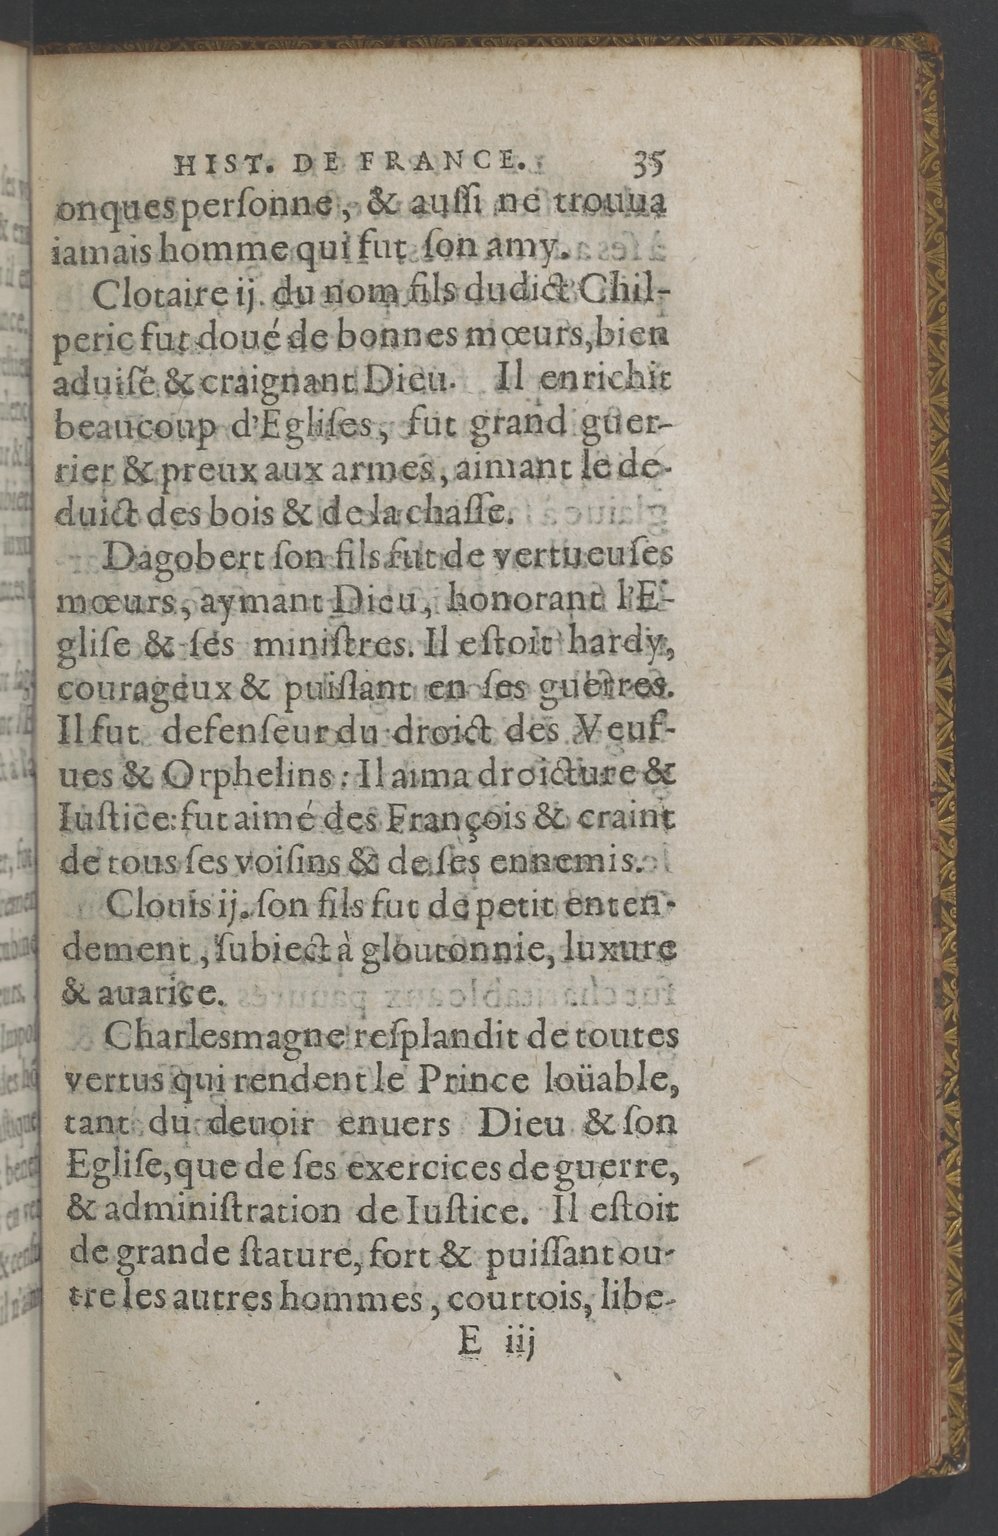 HIST. DE FRANCE. 35
onques perſonne, & auſſi ne trouua
iamais homme qui fut ſon amy.
Clotaire ij. du nom fils dudict Chil-
peric fut doué de bonnes mœurs, bien
aduiſé & craignant Dieu. Il enrichit
beaucoup d'Egliſes, fut grand guer-
rier & preux aux armes, aimant le de-
duict des bois & de la chaſſe.
Dagobert ſon fils fut de vertueuſes
mœurs, aymant Dieu, honorant l'E-
gliſe & ſes miniſtres. Il eſtoit hardy,
courageux & puiſſant en ſes guerres.
Il fut defenſeur du droict des Veuf-
ues & Orphelins: Il aima droicture &
Iuſtice: fut aimé des François & craint
de tous ſes voiſins & de ſes ennemis.
Clouis ij. ſon fils fut de petit enten-
dement, ſubiect à gloutonnie, luxure
& auarice.
Charlesmagne reſplandit de toutes
vertus qui rendent le Prince loüable,
tant du deuoir enuers Dieu & ſon
Egliſe, que de ſes exercices de guerre,
& adminiſtration de Iuſtice. Il eſtoit
de grande ſtature, fort & puiſſant ou-
tre les autres hommes, courtois, libe-
E iij